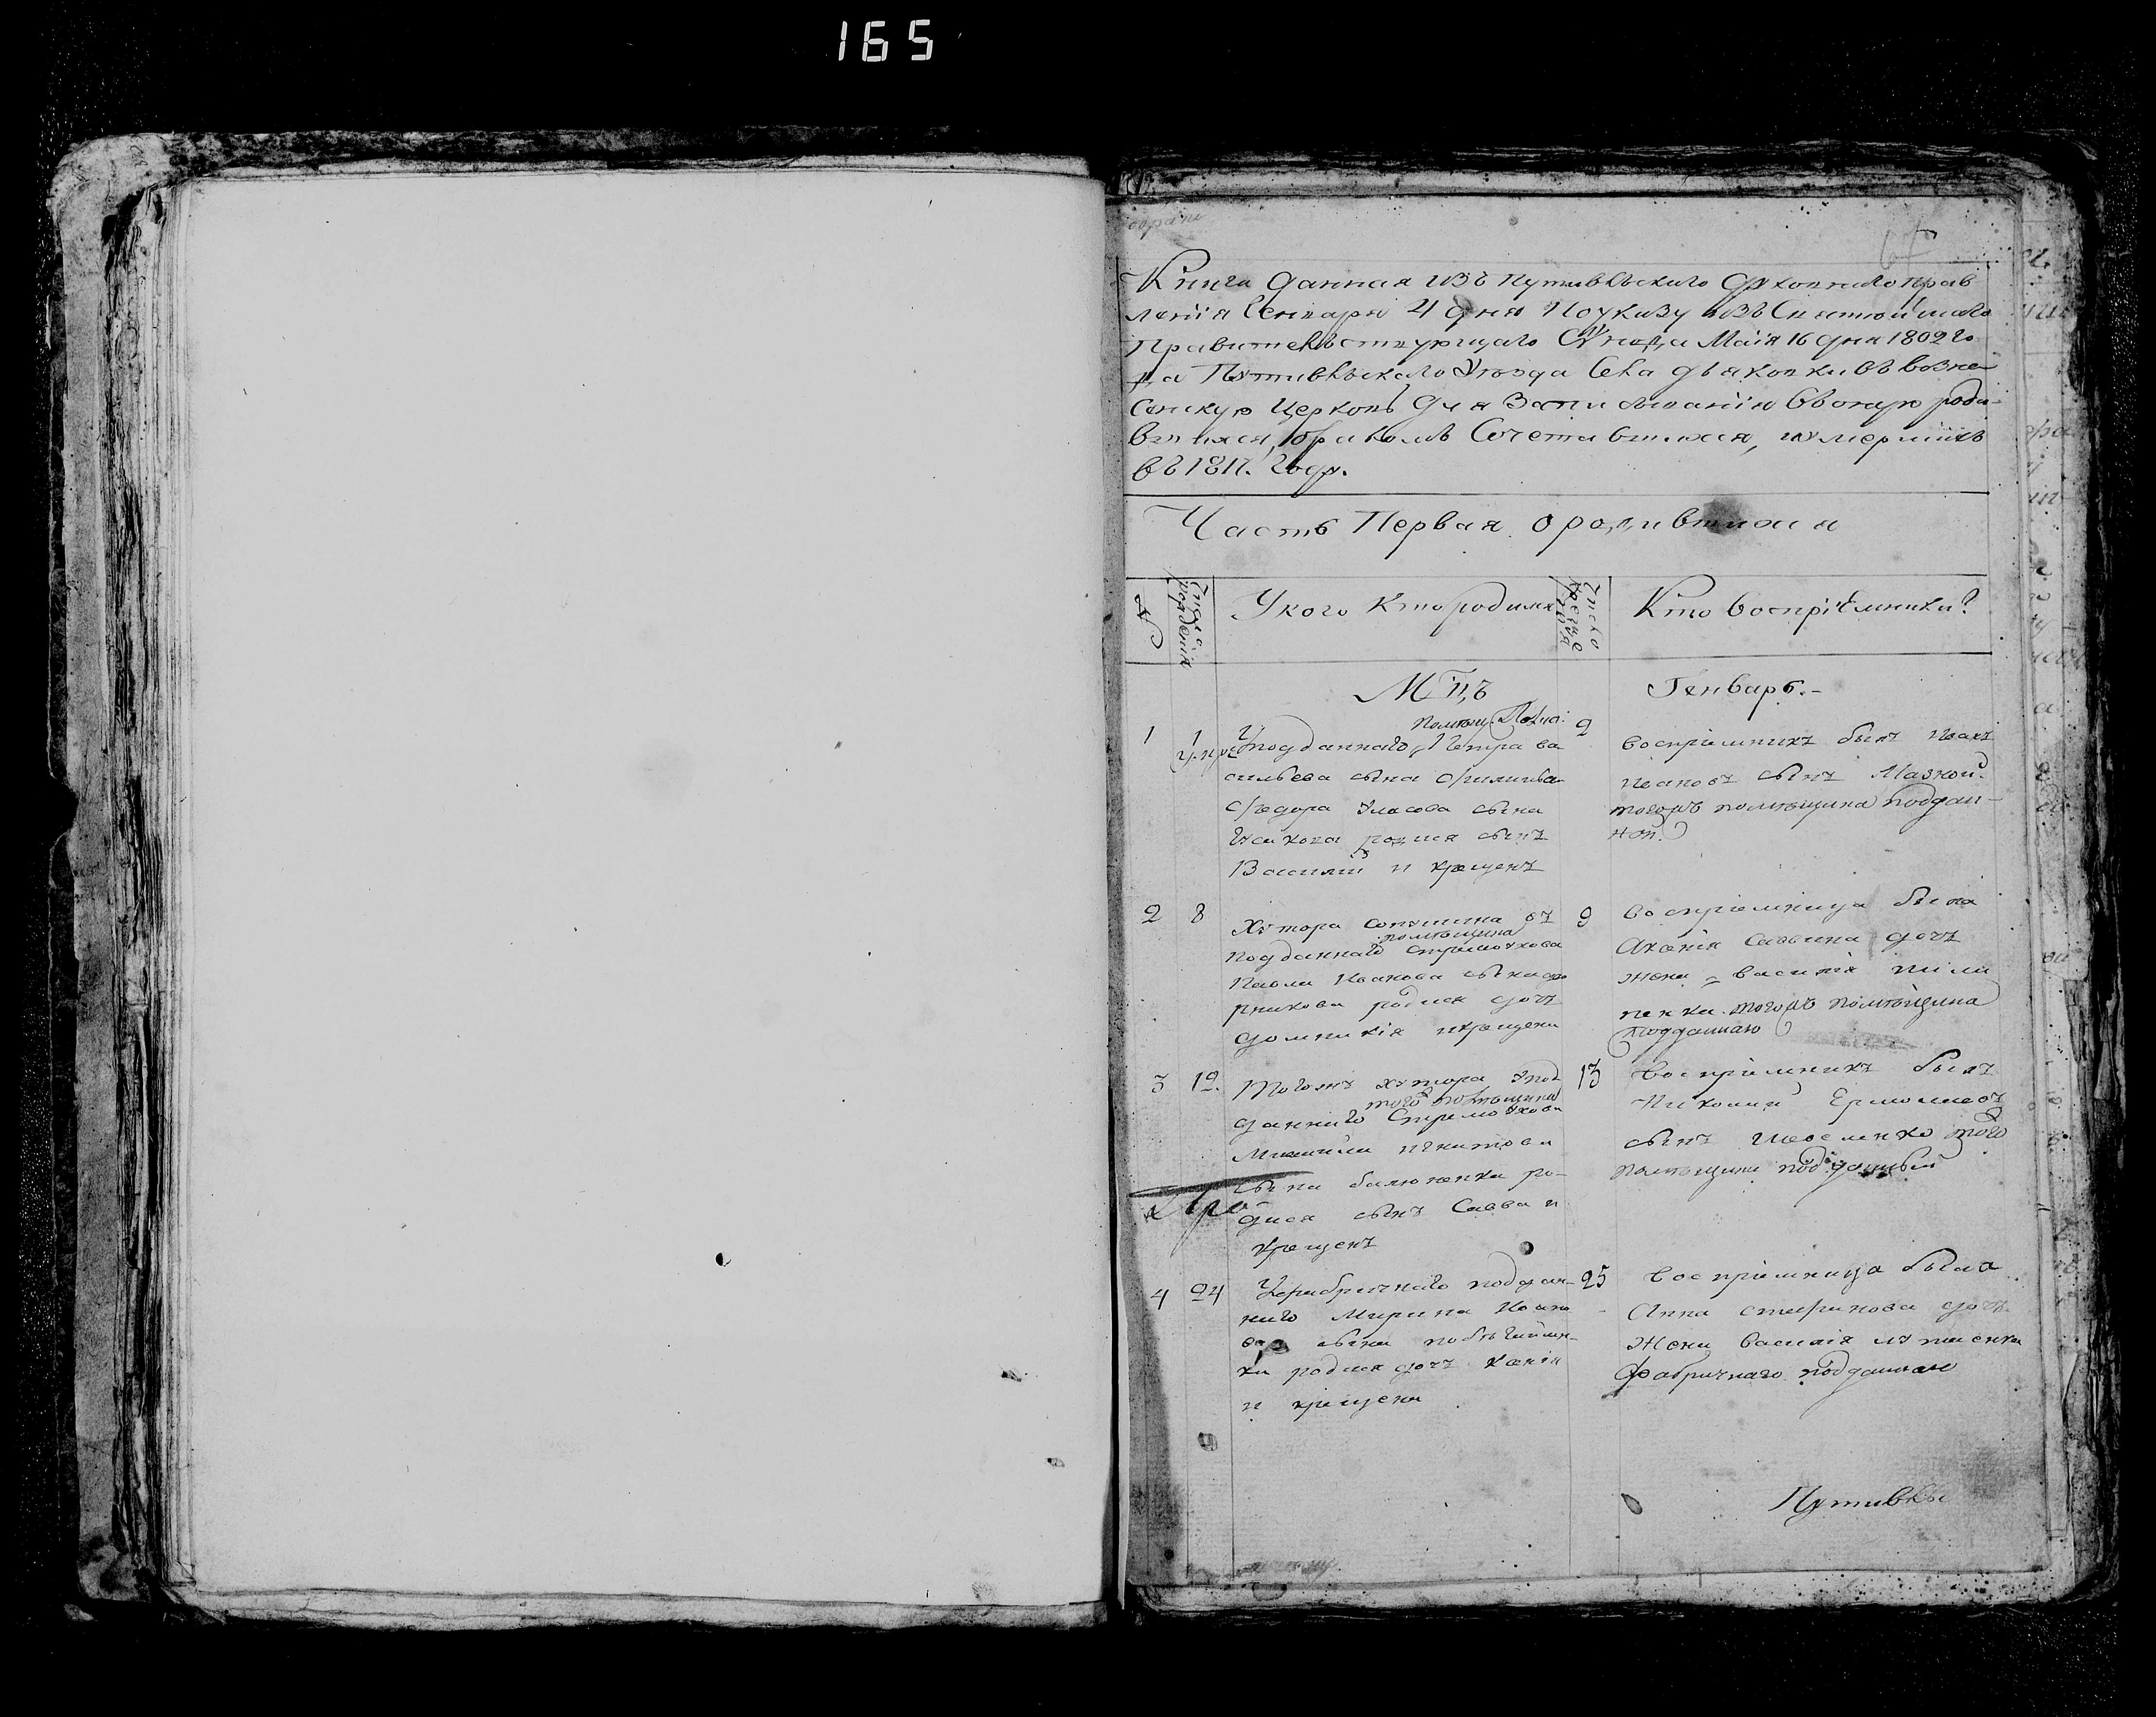 165
Книга данная изъ Путивльскаго духовнаго прав
ленія Генваря 4 дня Поуказу изъ Святейшаго
Правительствующаго Сѵнода Маія 16 дня 1802 го
да Путивльскаго Уезда Села дьяковки въ возне
сенскую Церковь Для ЗаписываніяВвоную роди
вшихся, бракомъ Сочетавшихся, иумершихъ
въ 1817. Году.
Часть Первая ородившихся
№
Число рожденія
Укого Кто родился
Число крещенія
Кто воспріемники?
Мцъ Генварь.
1 1 2
Помѣщ.
У подданнаго Петра ва
сильева сына Филипова
Федора Уласова сына
родися сынъ
Василій и крещенъ
воспріемникъ былъ
Ивановъ сынъ Мазкой
тогожъ помѣщика поддан-
ной
2 8 9
Хутора у
помѣщика
подданнаго Стремоухова
Павла Иванова сына
родися дочъ
домникія икрещена
воспріемница была
Аксенія Саввина дочъ
жена василія пили
пенка тогожъ помѣщика
подданнаго
3 12. 13
Тогожъ хутора упод
того помѣщика
даннаго Стремоухова
Михайла никитова
сына балюненка ро-
дися сынъ Савва и
крещенъ
воспріемникъ былъ
Николай Ермолаевъ
сынъ Шевеленко того
помѣщика подданный
4 24 25
Уфабричнаго поддан-
наго Марина Ивано
ва сына
ка родися дочъ Ксенія
и крещена
воспріемница была
Анна стефанова дочъ
Жена василія
фабричнаго подданнаго
Путивль